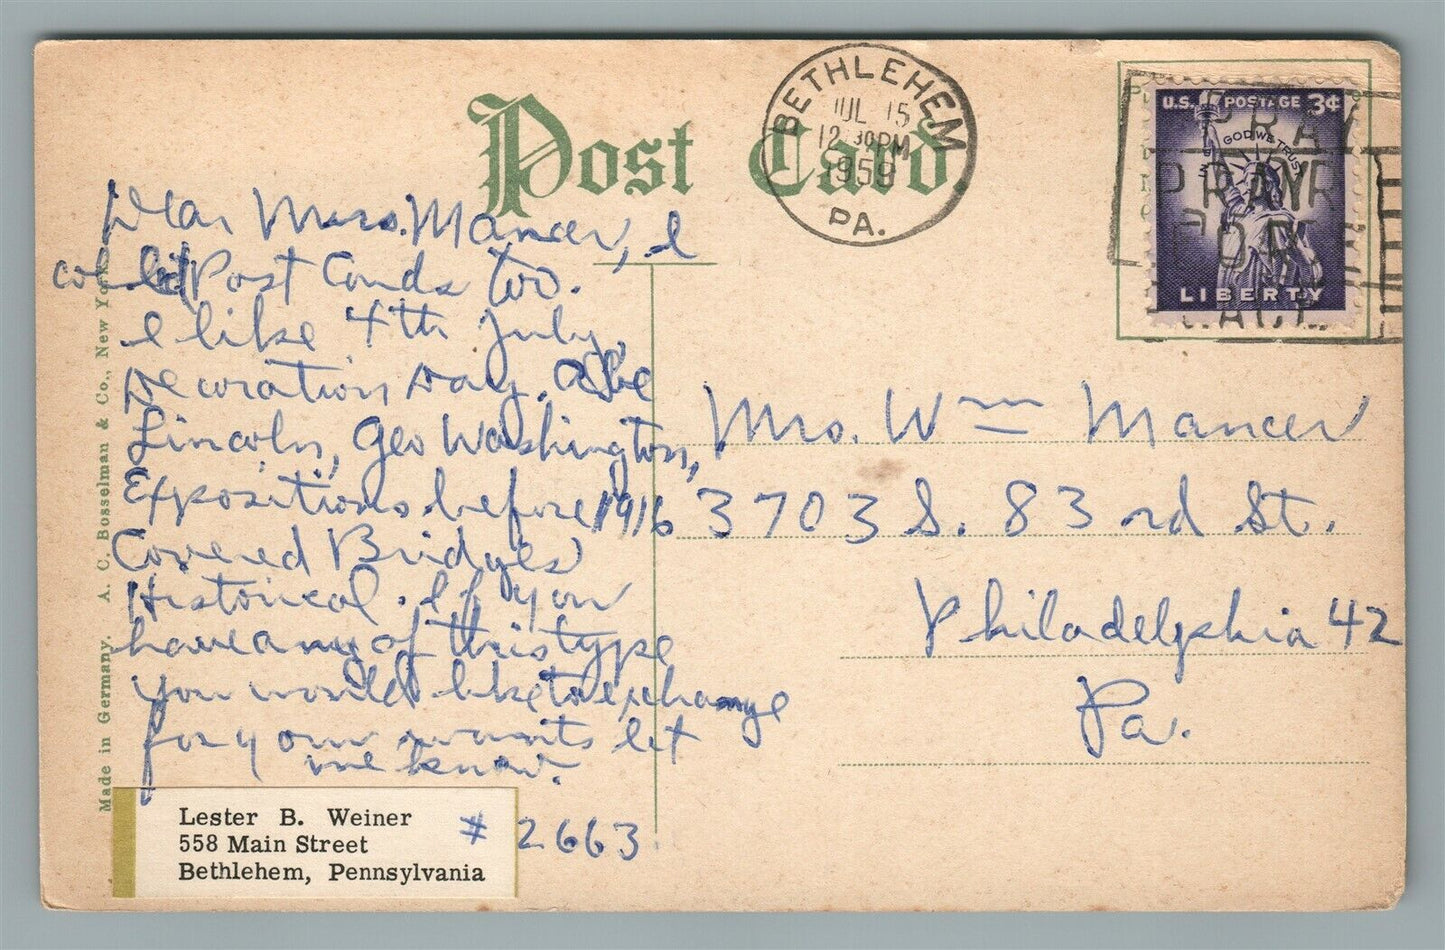 Post Card
BETHLEHEM
JUL 15
12 30 PM
1959
PA.
U.S. POSTAGE 3¢
IN GOD WE TRUST
LIBERTY
PRAY
FOR
Dear Mrs. Mancer, I
collect Post Cards too.
I like 4th July,
Decoration Day, Abe
Lincoln, Geo Washington,
Expositions before 1916
Covered Bridges
Historical. If you
have any of this type
you would like to exchange
for your wants let
me know.
Made in Germany. A. C. Bosselman & Co., New York.
Mrs. Wm Mancer
3703 S. 83rd St.
Philadelphia 42
Pa.
Lester B. Weiner # 2663.
558 Main Street
Bethlehem, Pennsylvania